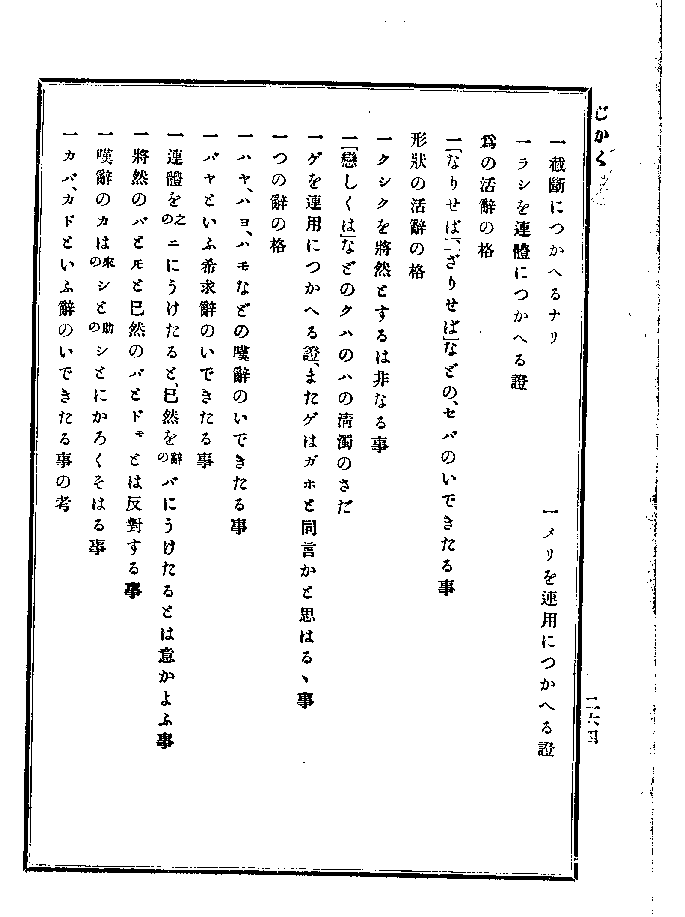 じかく
二六四
一截斷につかへるナリ
一メリを連用につかへる證
一ラシを連體につかへる證
爲の活辭の格
一「なりせば」、「ざりせば」などの、セバのいできたる事
形狀の活辭の格
一クシクを將然とするは非なる事
一「戀しくは」などのクハのハの淸濁のさだ
一ゲを連用につかへる證、またゲはガホと同言かと思はるゝ事
一つの辭の格
一ハヤ、ハヨ、ハモなどの嘆辭のいできたる事
一バヤといふ希求辭のいできたる事
一連體を之のニにうけたると、已然を辭のバにうけたるとは意かよふ事
一將然のバとモと已然のバとドモとは反對する事
一嘆辭のカは來のシと助のシとにかろくそはる事
一カバ、カドといふ辭のいできたる事の考